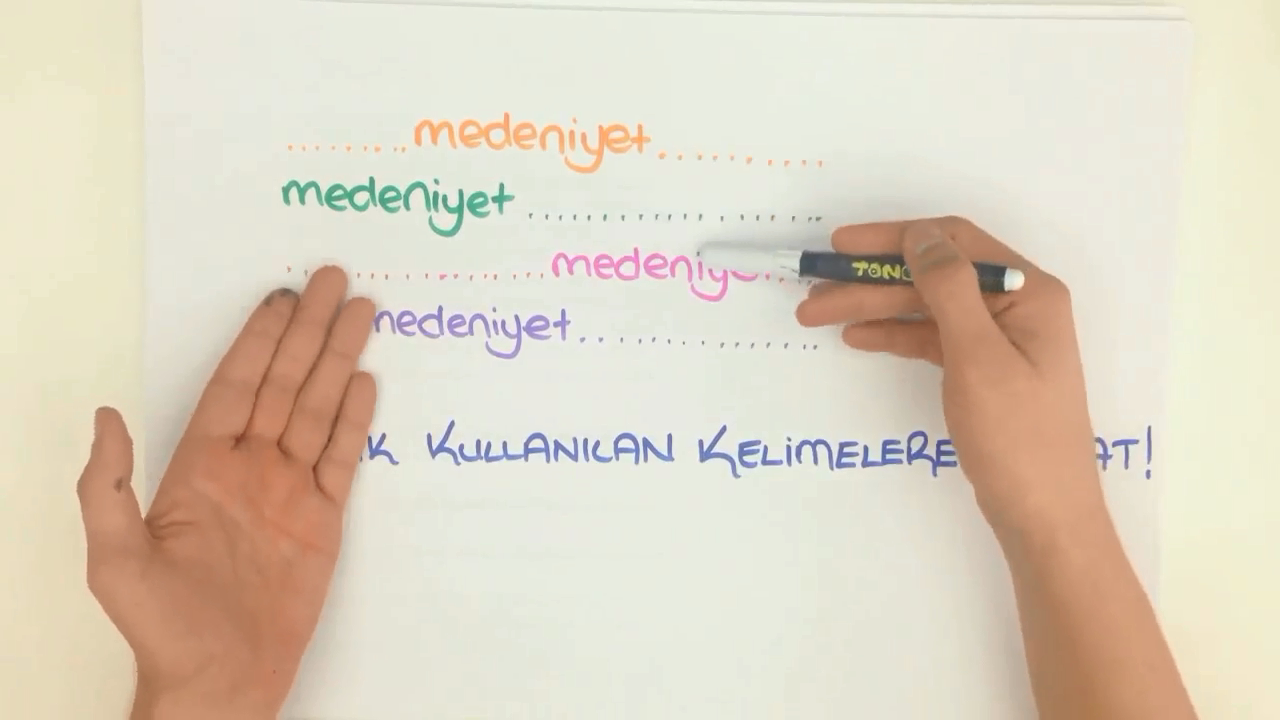 ........medeniyet..........
medeniyet...............
...............medeniy
medeniyet.............
KULLANILAN KELİMELERE
TON